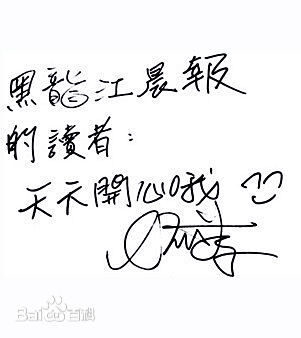 黑龍江晨報
的讀者：
天天開心哦
Bai百科